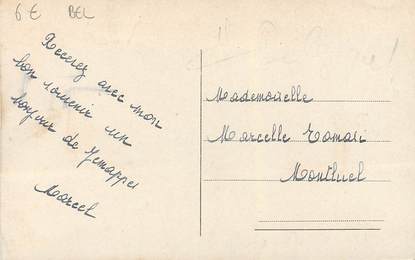 6 € BEL
Recevez avec mon
bon souvenir un
bonjour de Jemappes
Marcel
Mademoiselle
Marcelle
Montluel